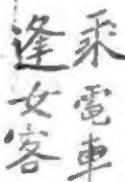 乘電車
逢女客